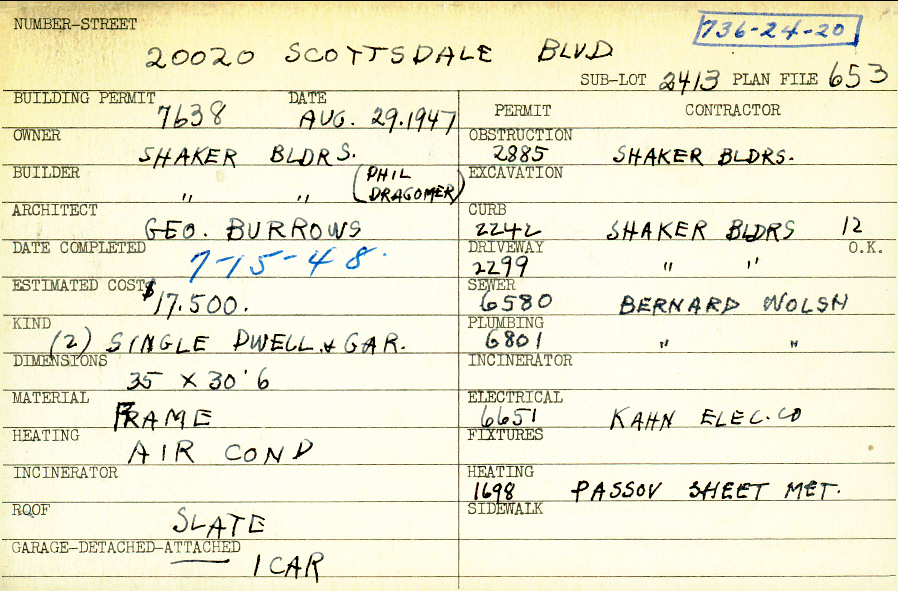 NUMBER-STREET
736-24-20
20020 SCOTTSDALE BLVD
SUB-LOT 2413 PLAN FILE 653
BUILDING PERMIT 7638 DATE AUG. 29.1947
OWNER SHAKER BLDRS.
BUILDER " " (PHIL DRAGOMER)
ARCHITECT GEO. BURROWS
DATE COMPLETED 7-15-48.
ESTIMATED COST $17.500.
KIND (2) SINGLE DWELL. & GAR.
DIMENSIONS 35 X 30'6
MATERIAL FRAME
HEATING AIR COND
INCINERATOR
ROOF SLATE
GARAGE-DETACHED-ATTACHED 1 CAR
PERMIT CONTRACTOR
OBSTRUCTION 2885 SHAKER BLDRS.
EXCAVATION
CURB 2242 SHAKER BLDRS 12
DRIVEWAY 2299 " " O.K.
SEWER 6580 BERNARD WOLSH
PLUMBING 6801 " "
INCINERATOR
ELECTRICAL 6651 KAHN ELEC. CO
FIXTURES
HEATING 1698 PASSOV SHEET MET.
SIDEWALK